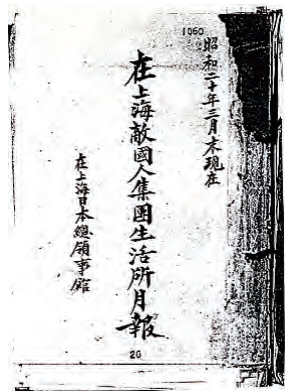 1060
昭和二十年三月末現在
在上海敵國人集團生活所月報
在上海日本總領事館
20